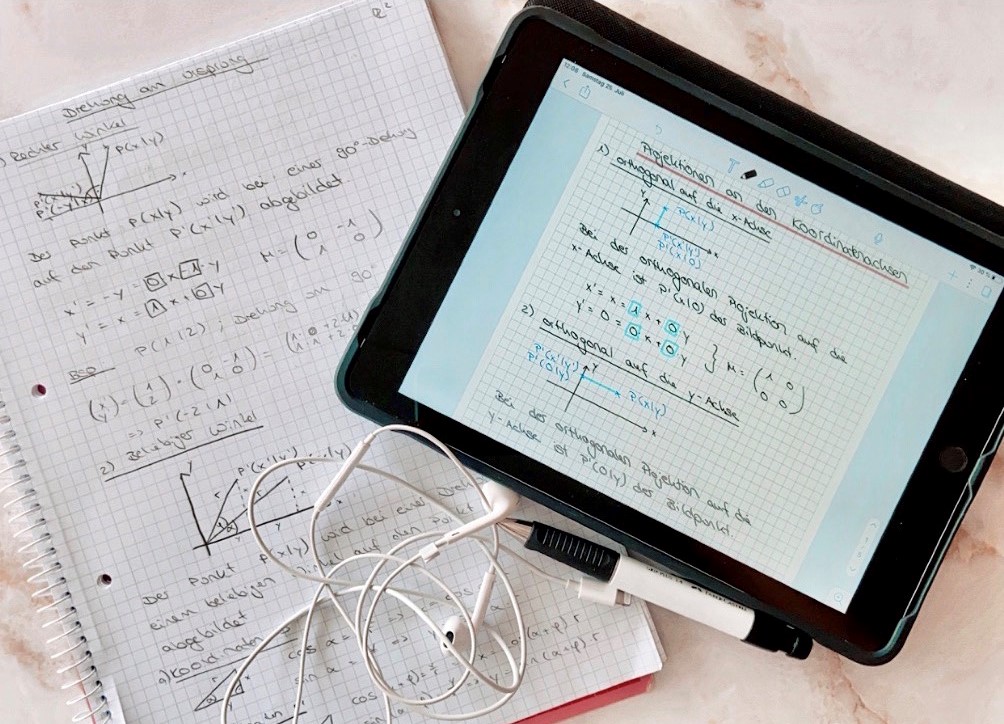 R²
Drehung am Ursprung
1) Rechter Winkel
y
P(x|y)
x
P'(x'|y')
P'(-y|x)
Der Punkt P(x|y) wird bei einer 90°-Drehung
auf den Punkt P'(x'|y') abgebildet
x' = -y = 0 x -1 y
y' = x = 1 x + 0 y
M = (0 -1
1 0)
BSP
P(1|2) ; Drehung um 90°
(x' y') = (1 2) · (0 -1
1 0) =
=> P'(-2|1)
2) Beliebiger Winkel
y
P'(x'|y')
r
α
x
y
Der Punkt P(x|y) wird bei einer Dreh
einem beliebigen Winkel auf den Punkt
abgebildet
a) Koordinaten
cos α =
sin α =
12:08 Samstag 25. Juli
T
Projektionen an den Koordinatenachsen
1) orthogonal auf die x-Achse
y
P(x|y)
x
P'(x'|y')
P'(x|0)
Bei der orthogonalen Projektion auf die
x-Achse ist P'(x|0) der Bildpunkt.
x' = x = 1 x + 0 y
y' = 0 = 0 x + 0 y
} M = (1 0
0 0)
2) orthogonal auf die y-Achse
P'(x'|y')
P'(0|y)
y
P(x|y)
x
Bei der orthogonalen Projektion auf die
y-Achse ist P'(0|y) der Bildpunkt.